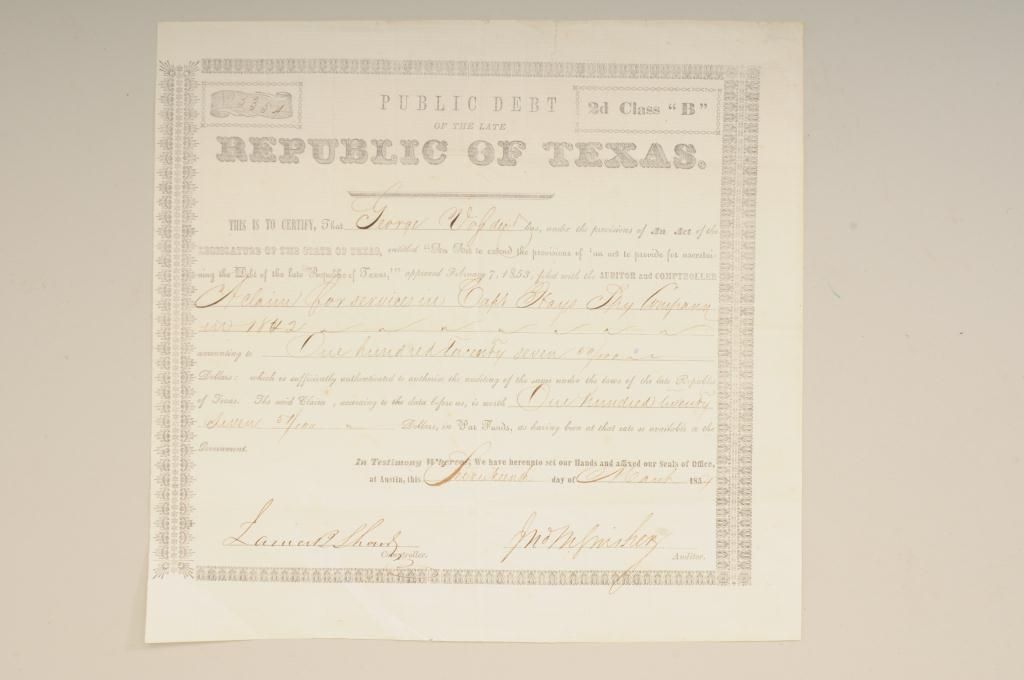 PUBLIC DEBT
2d Class "B"
OF THE LATE
REPUBLIC OF TEXAS.
THIS IS TO CERTIFY, That George under the provisions of An Act of the
LEGISLATURE OF THE STATE OF TEXAS, entitled "An Act to extend the provisions of 'an act to provide for ascertai-
ning the Debt of the late Republic of Texas,'" approved February 7, 1853, filed with the AUDITOR and COMPTROLLER
A claim for services in Capt Hays Spy Company
in 1842
amounting to One hundred twenty seven 50/100
Dollars: which is sufficiently authenticated to authorize the auditing of the same under the laws of the late Republic
of Texas. The said Claim, according to the data before us, is worth One hundred twenty
seven 50/100 Dollars, in Par Funds, as having been at that rate so available to the
Government.
In Testimony Whereof, We have hereunto set our Hands and affixed our Seals of Office,
at Austin, this day of March 1854
James B Shaw
Comptroller.
Auditor.